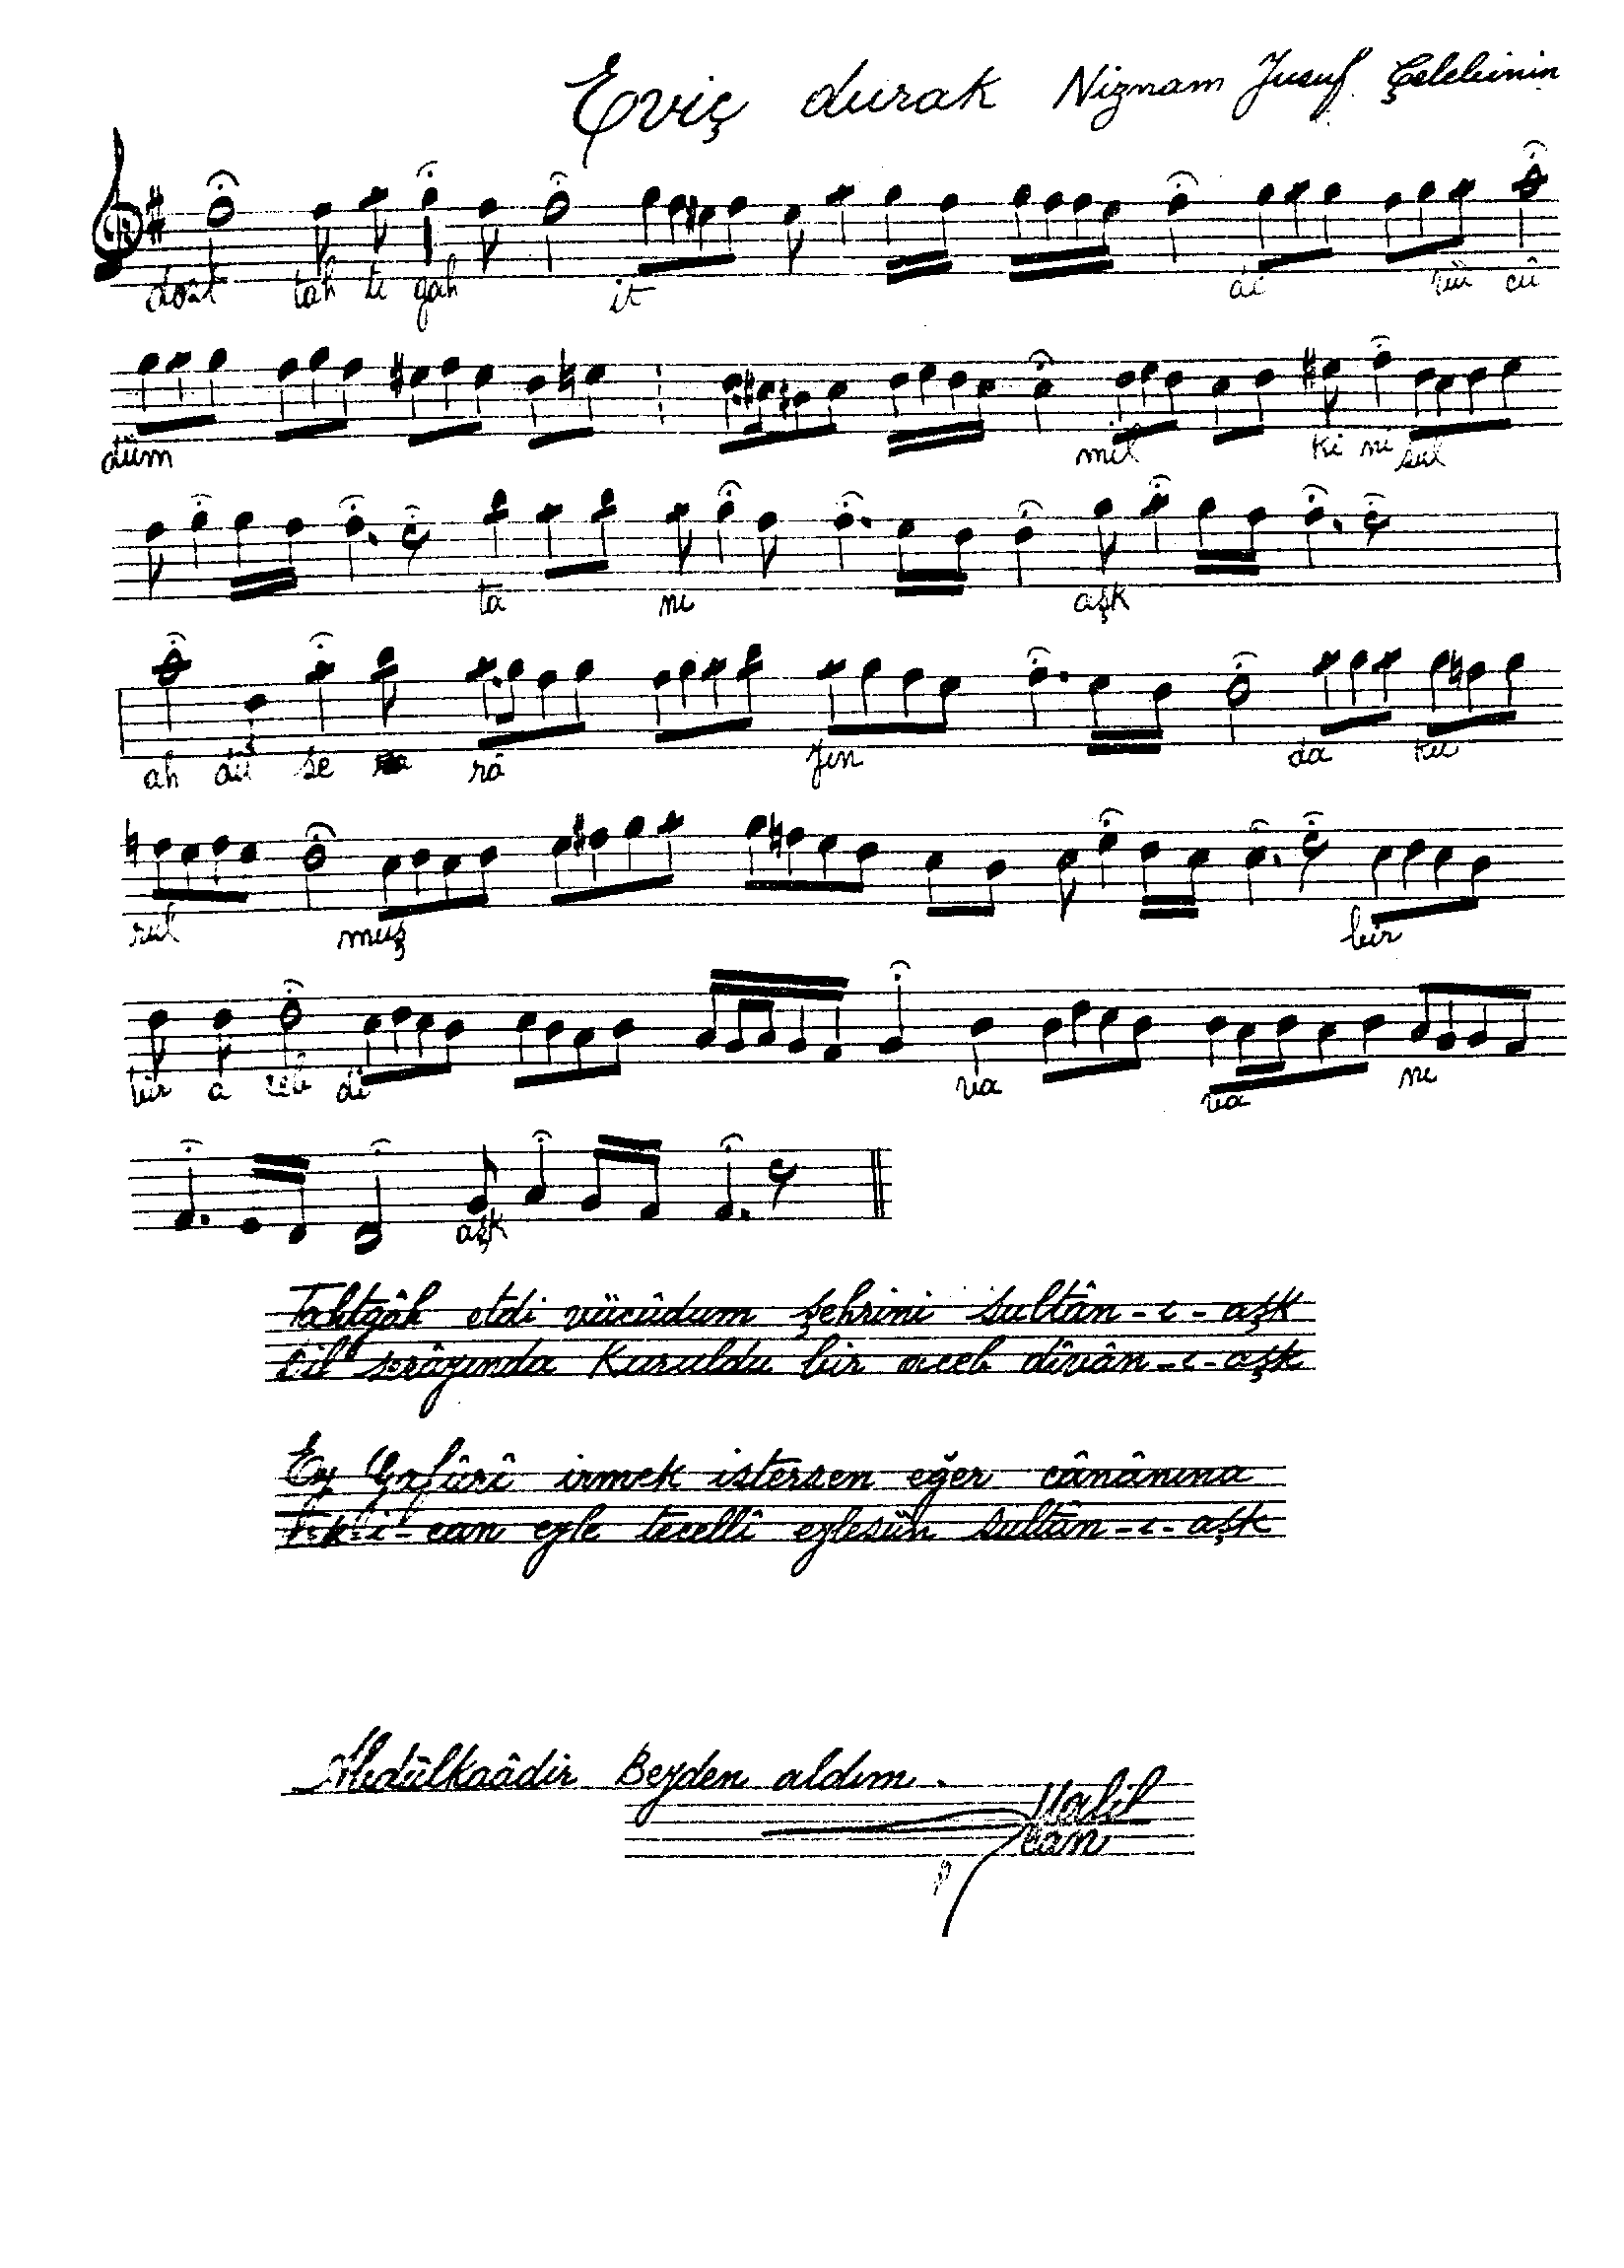 Eviç durak Niznam Yusuf Çelebinin
dost tah te gâh it di vü cû
düm mül ki ni sul
ta nı aşk
ah dil se râ yın da ku
rul muş bir
bir a ceb di va va nı
aşk
Tahtgâh etdi vücûdum şehrini sultân-ı-aşk
Dil serâyında kuruldu bir aceb dîvân-ı-aşk
Ey Gafûrî irmek istersen eğer cânânına
can eyle tecellî eylesün sultân-ı-aşk
Abdülkaâdir Beyden aldım.
Halil
Can